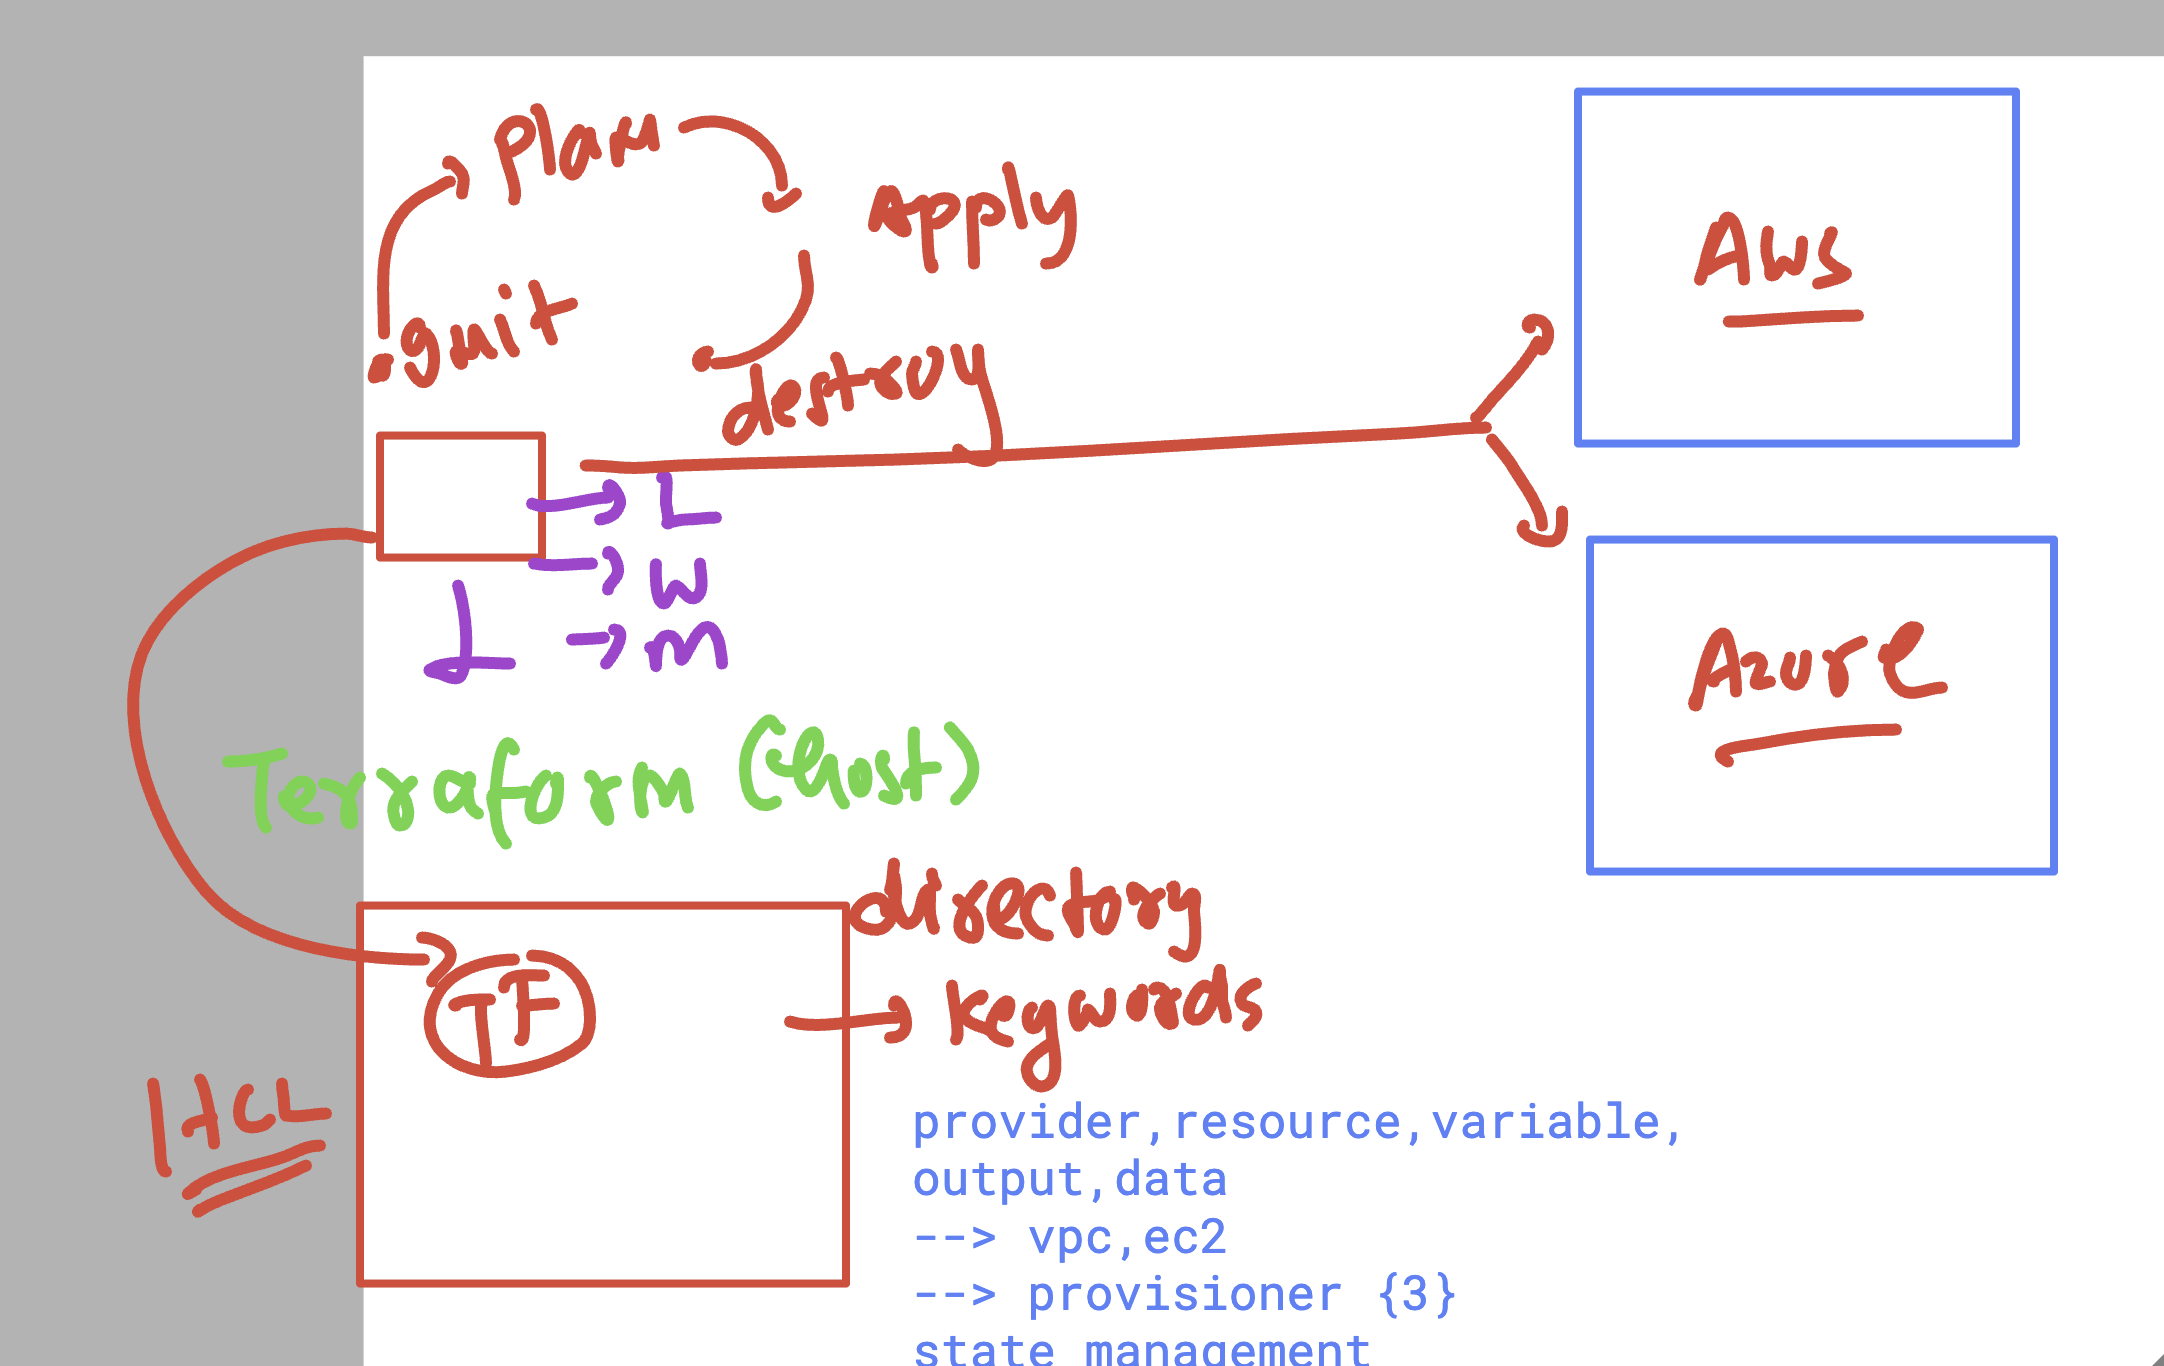 Plan
Apply
init
destroy
AWS
L
W
M
Azure
Terraform (host)
directory
TF
keywords
HCL
provider,resource,variable,
output,data
--> vpc,ec2
--> provisioner {3}
state management